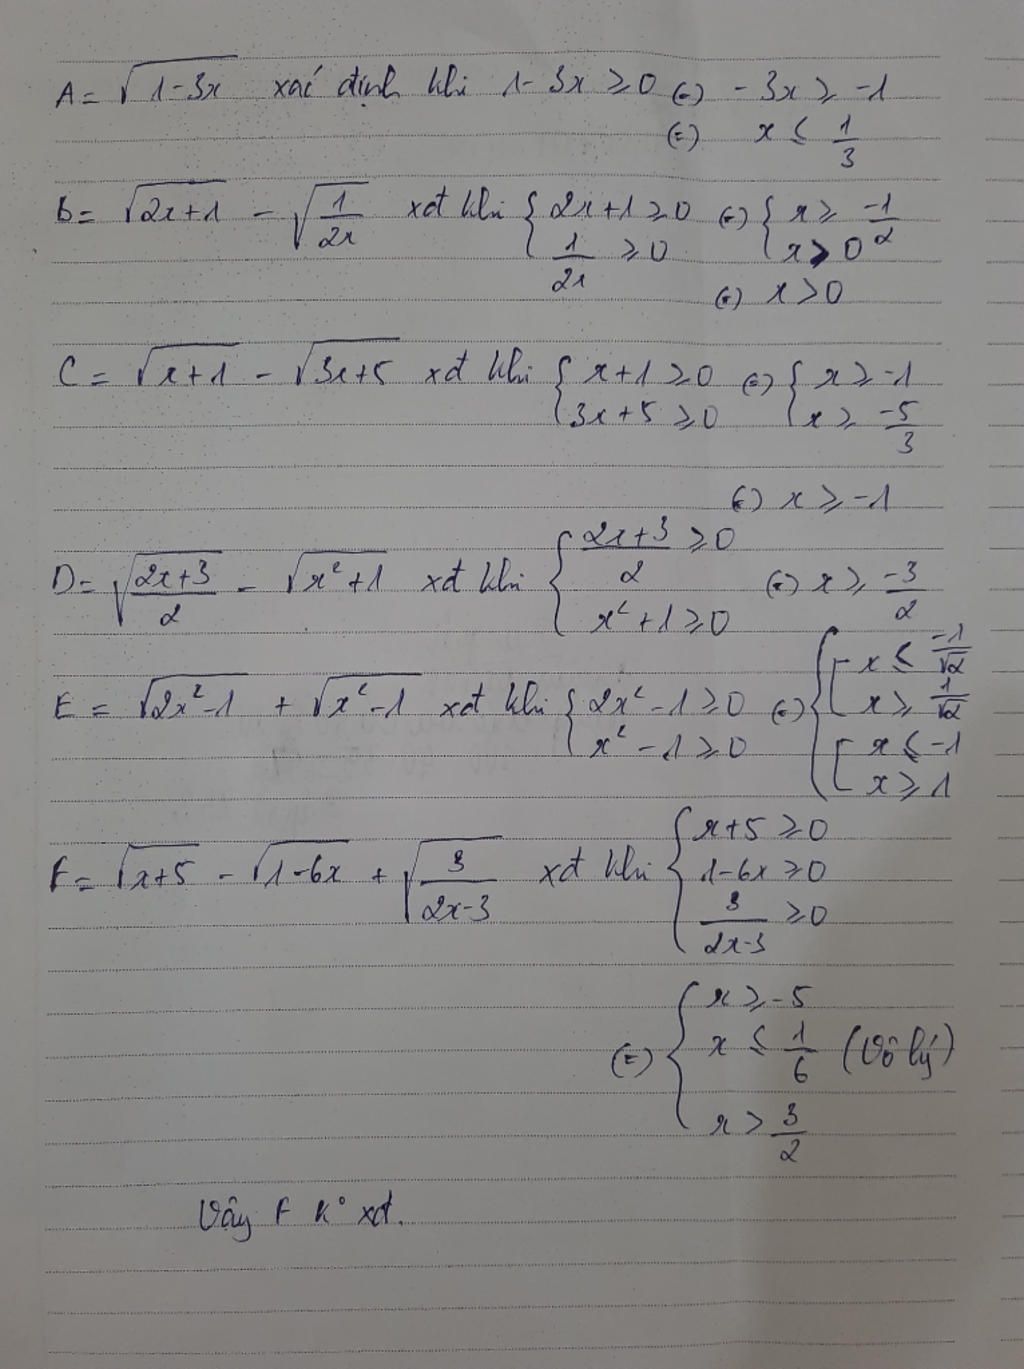 A = √(1-3x) xác định khi 1-3x ≥ 0 (=) -3x ≥ -1
(=) x ≤ 1/3
B = √(2x+1) - √(1/2x) xđ khi { 2x+1 ≥ 0 (=) { x ≥ -1/2
1/2x ≥ 0 x > 0
(=) x > 0
C = √(x+1) - √(3x+5) xđ khi { x+1 ≥ 0 (=) { x ≥ -1
3x+5 ≥ 0 x ≥ -5/3
(=) x ≥ -1
D = √((2x+3)/2) - √(x²+1) xđ khi { (2x+3)/2 ≥ 0 (=) x ≥ -3/2
x²+1 ≥ 0
E = √(2x²-1) + √(x²-1) xđ khi { 2x²-1 ≥ 0 (=) { [ x ≤ -1/√2
x ≥ 1/√2
x²-1 ≥ 0 [ x ≤ -1
x ≥ 1
F = √(x+5) - √(1-6x) + √(3/(2x-3)) xđ khi { x+5 ≥ 0
1-6x ≥ 0
3/(2x-3) ≥ 0
(=) { x ≥ -5
x ≤ 1/6 (Vô lý)
x > 3/2
Vậy F K° xđ.